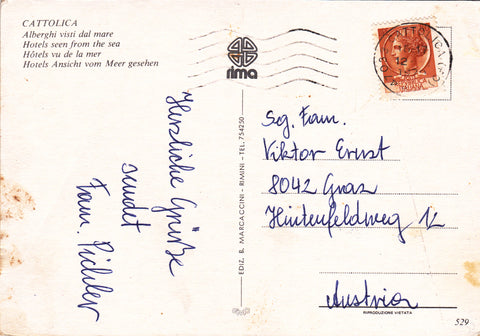 CATTOLICA
Alberghi visti dal mare
Hotels seen from the sea
Hôtels vu de la mer
Hotels Ansicht vom Meer gesehen
rima
CATTOLICA
12
Herzliche Grüße
sendet
Fam. Pichler
EDIZ. B. MARCACCINI - RIMINI - TEL. 754250
Sog. Fam.
Viktor Ernst
8042 Graz
Hintenfeldweg 12
Austria
RIPRODUZIONE VIETATA
529